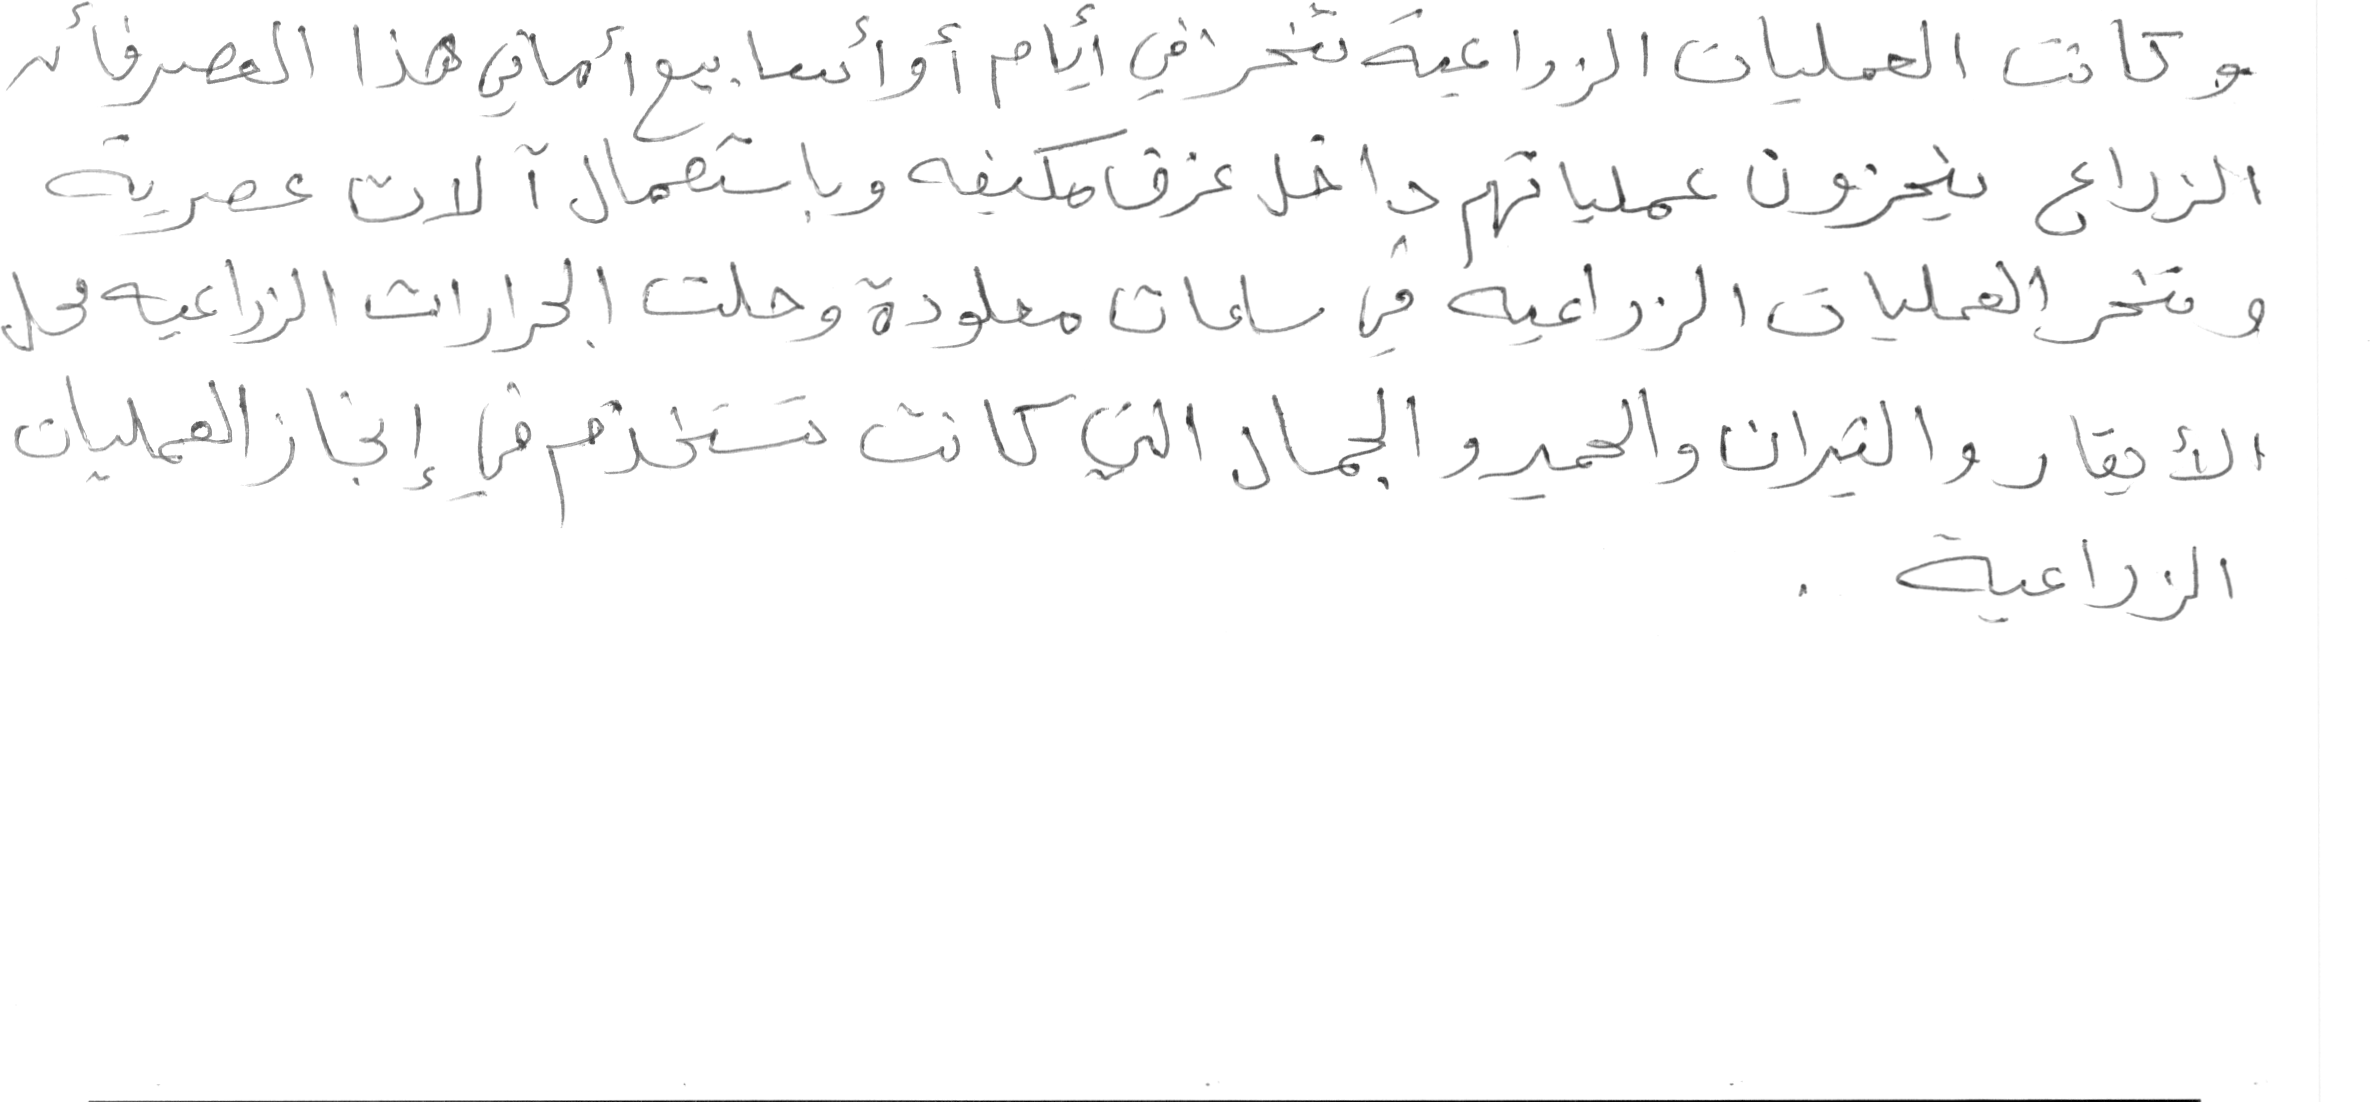 وكانت العمليات الزراعية تنجز في أيام أو أسابيع أما في هذا العصر فأن
الزراع ينجزون عملياتهم داخل غرف مكيفه وباستعمال آلات عصرية
وتنجز العمليات الزراعيه في ساعات معدودة وحلت الجرارات الزراعيه محل
الأبقار والثيران والحمير والجمال التي كانت تستخدم في إنجاز العمليات
الزراعية .